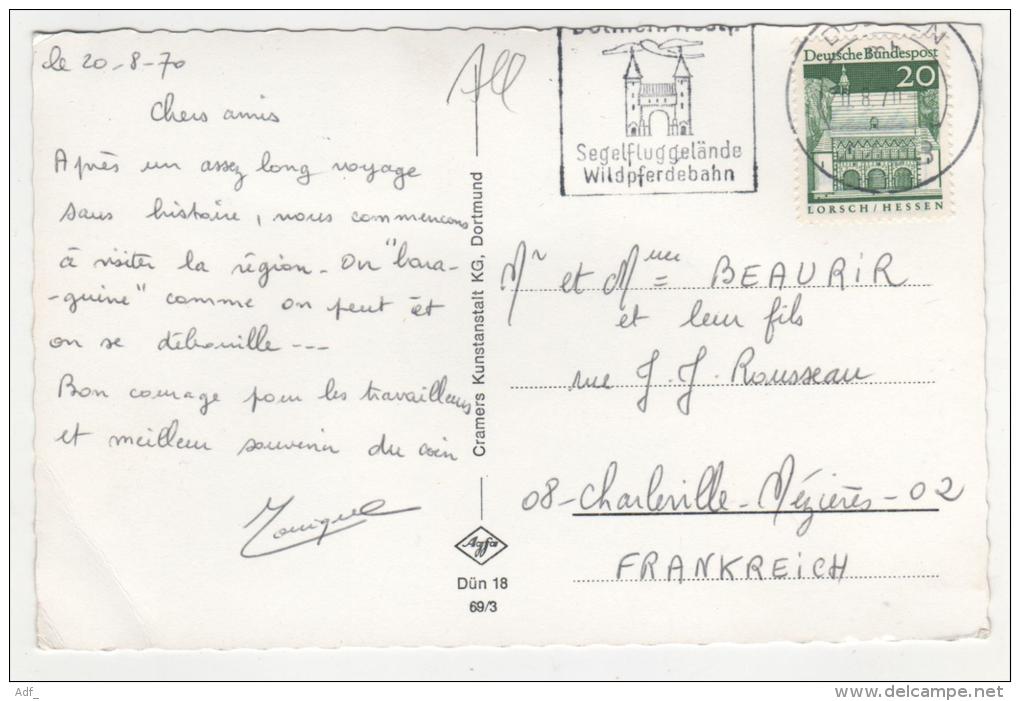 le 20-8-70
All
Chers amis
Après un assez long voyage
sans histoire, nous commencons
à visiter la région - On "bara-
-guine" comme on peut et
on se débrouille ---
Bon courage pour les travailleurs
et meilleur souvenir du coin
Monique
Cramers Kunstanstalt KG, Dortmund
Agfa
Dün 18
69/3
Dülmen/Westf.
Segelfluggelände
Wildpferdebahn
Deutsche Bundespost
20
LORSCH/HESSEN
Mr et Mme BEAURIR
et leur fils
rue J.J. Rousseau
08-Charleville-Mézières-02
FRANKREICH
Adf_
www.delcampe.net